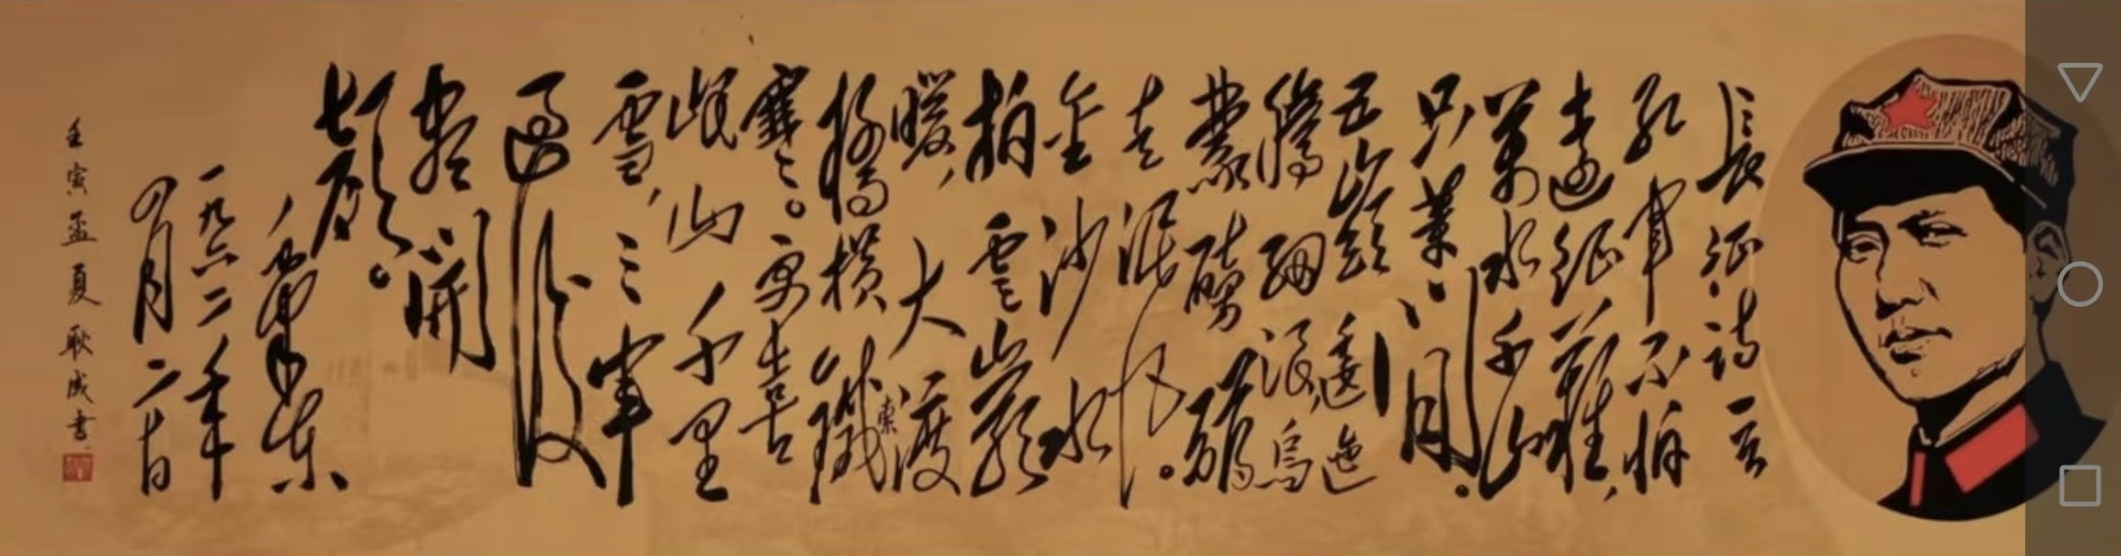 長征詩一首
紅軍不怕
遠征難,
萬水千山
只等閑。
五嶺逶迤
騰細浪,烏
蒙磅礴
走泥丸。
金沙水
拍雲崖
暖,大渡
橋橫鐵索
寒。更喜
岷山千里
雪,三軍
過後
盡開
顏。
七律
毛澤東
一九六二年
四月二十日
壬寅孟夏耿成書